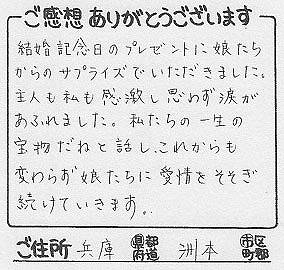 ご感想 ありがとうございます
結婚記念日のプレゼントに娘たち
からのサプライズでいただきました。
主人も私も感激し思わず涙が
あふれました。私たちの一生の
宝物だねと話し、これからも
変わらず娘たちに愛情をそそぎ
続けていきます。
ご住所 兵庫 県都府道 洲本 市区町郡